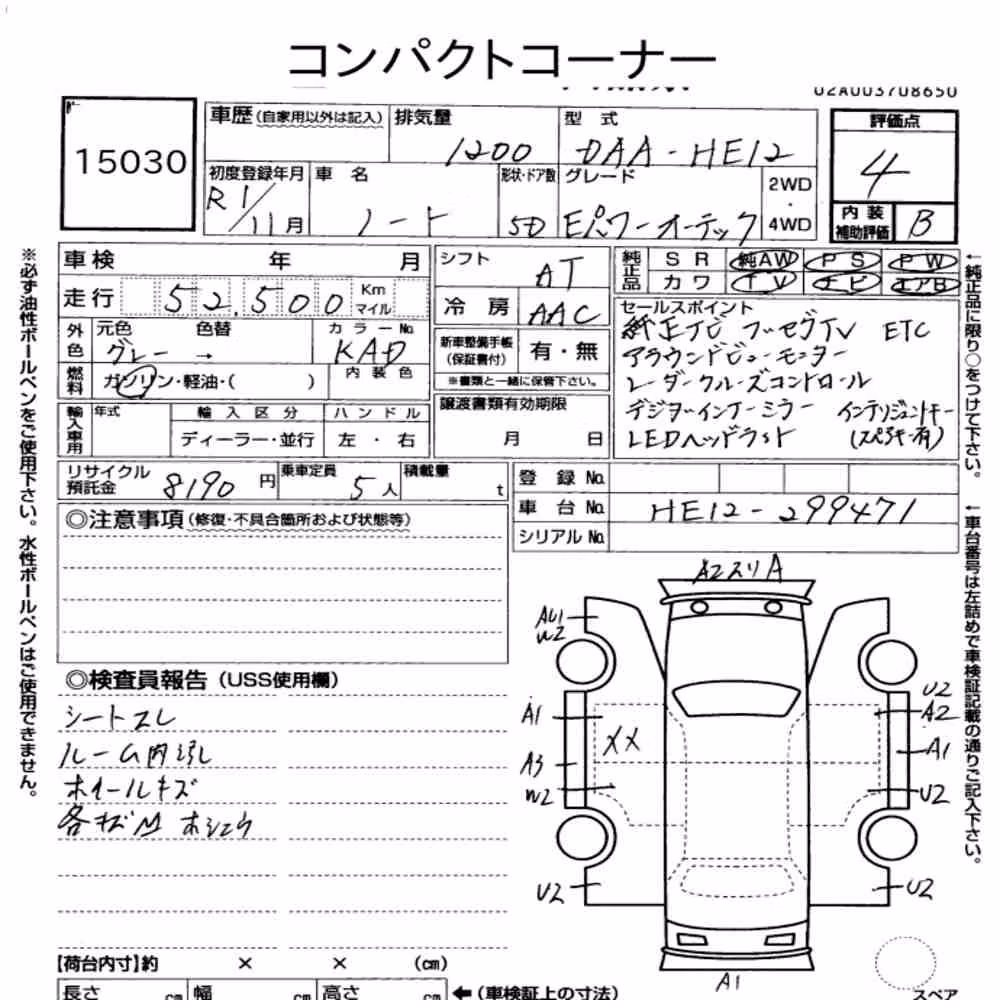 コンパクトコーナー
15030
車歴 (自家用以外は記入) 排気量 1200 型式 DAA-HE12
評価点 4
初度登録年月 R1/11月 車名 ノート 形状・ドア数 5D グレード Eパワーオーテック 2WD・4WD
内装補助評価 B
車検 年 月 シフト AT
純正品 SR 純AW PS PW
カワ TV ナビ エアB
走行 52,500 Km マイル
冷房 AAC
外色 元色 グレー → 色替 カラーNo. KAD
新車整備手帳 (保証書付) 有・無
※書類と一緒に保管下さい。
燃料 ガソリン・軽油・( ) 内装色
輸入車用 年式 輸入区分 ディーラー・並行 ハンドル 左・右
譲渡書類有効期限 月 日
セールスポイント
純正ナビ フーセグTV ETC
アラウンドビューモニター
レーダークルーズコントロール
デジタルインナーミラー インテリジェントキー
LEDヘッドライト (スペアキー有)
リサイクル預託金 8190円 乗車定員 5人 積載量 t
登録No.
車台No. HE12-299471
シリアルNo.
◎注意事項 (修復・不具合箇所および状態等)
◎検査員報告 (USS使用欄)
シートスレ
ルーム内汚れ
ホイールキズ
各キズM ホシュウ
A2スリA
AU1
W2
A1
XX
A3
W2
U2
U2
A2
A1
U2
U2
A1
【荷台内寸】約 × × (cm)
長さ cm 幅 cm 高さ cm ←(車検証上の寸法)
スペア
※必ず油性ボールペンをご使用下さい。水性ボールペンはご使用できません。
←純正品に限り○をつけて下さい。
←車台番号は左詰めで車検証記載の通りご記入下さい。